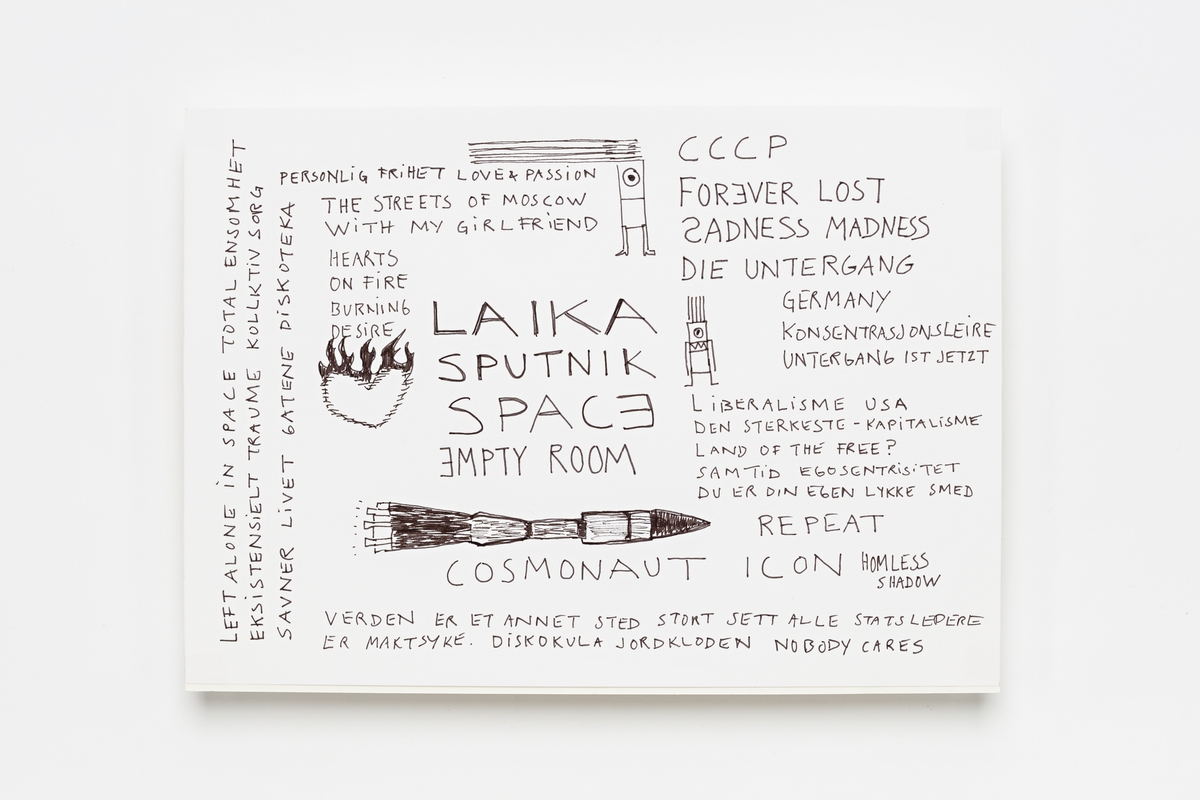 LEFT ALONE iN SPACE TOTAL ENSOMHET
EKSiSTENSiELT TRAUME KOLLKTiV SORG
SAVNER LiVET GATENE DiSKOTEKA
PERSONLiG FRiHET LOVE & PASSiON
THE STREETS OF MOSCOW
WiTH MY GiRLFRiEND
HEARTS
ON FiRE
BURNiNG
DESiRE
LAIKA
SPUTNIK
SPACE
EMPTY ROOM
CCCP
FOREVER LOST
SADNESS MADNESS
DIE UNTERGANG
GERMANY
KONSENTRASJONSLEIRE
UNTERGANG IST JETZT
LiBERALiSME USA
DEN STERKESTE - KAPiTALiSME
LAND OF THE FREE?
SAMTiD EGOSENTRiSiTET
DU ER DiN EGEN LYKKE SMED
REPEAT
COSMONAUT ICON HOMLESS
SHADOW
VERDEN ER ET ANNET STED STORT SETT ALLE STATSLEDERE
ER MAKTSYKE. DiSKOKULA JORDKLODEN NOBODY CARES